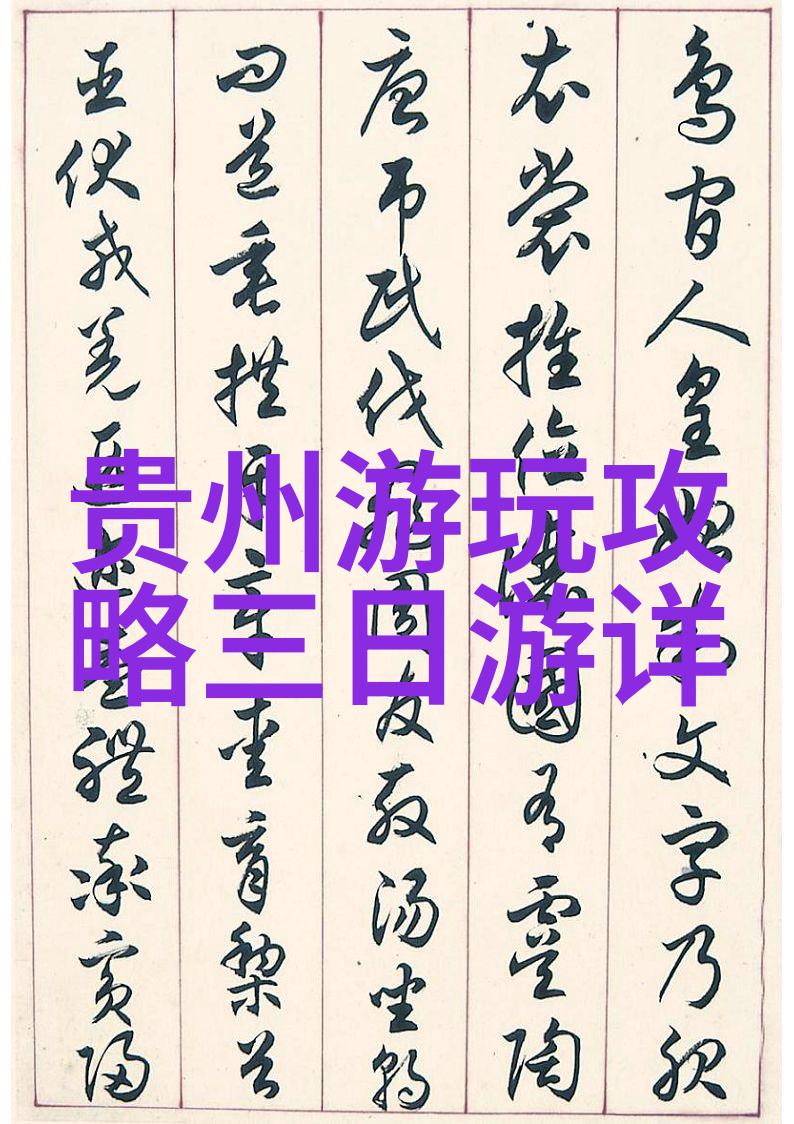 贵州游玩攻
略三日游详
鸟官人皇始制文字乃服
衣裳推位讓國有虞陶
唐吊民伐罪周发殷汤坐朝
问道垂拱平章爱育黎首
臣伏戎羌遐迩壹體率宾归